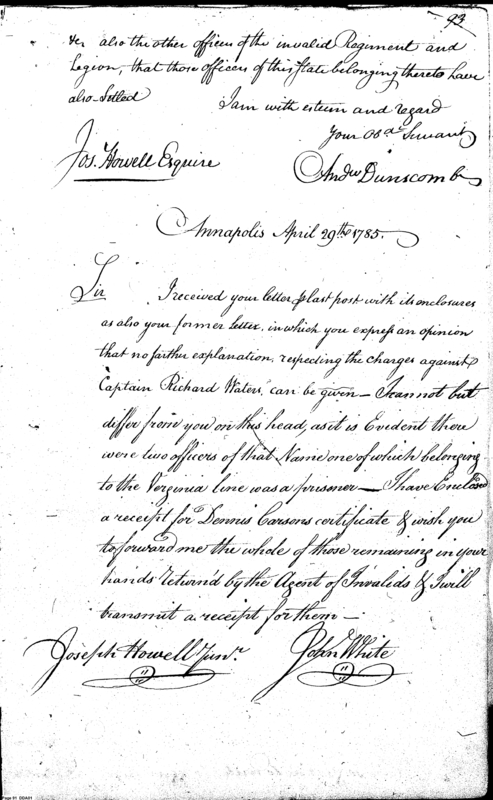 93
&c also the other officers of the invalid Regiment and
Legion, that those officers of this State belonging thereto have
also Settled
I am with esteem and regard
Your Obd Servant
Jos. Howell Esquire
Andw Dunscomb
Annapolis April 29th 1785.
Sir
I received your letter last post with its enclosures
as also your former letter, in which you express an opinion
that no farther explanation, respecting the charges against
Captain Richard Waters, can be given — I cannot but
differ from you on this head, as it is Evident there
were two officers of that Name one of which belonging
to the Virginia line was a prisoner — I have Enclosed
a receipt for Dennis Carsons certificate & wish you
to forward me the whole of those remaining in your
hands return'd by the Agent of Invalids & I will
transmit a receipt for them —
Joseph Howell Junr.
John White